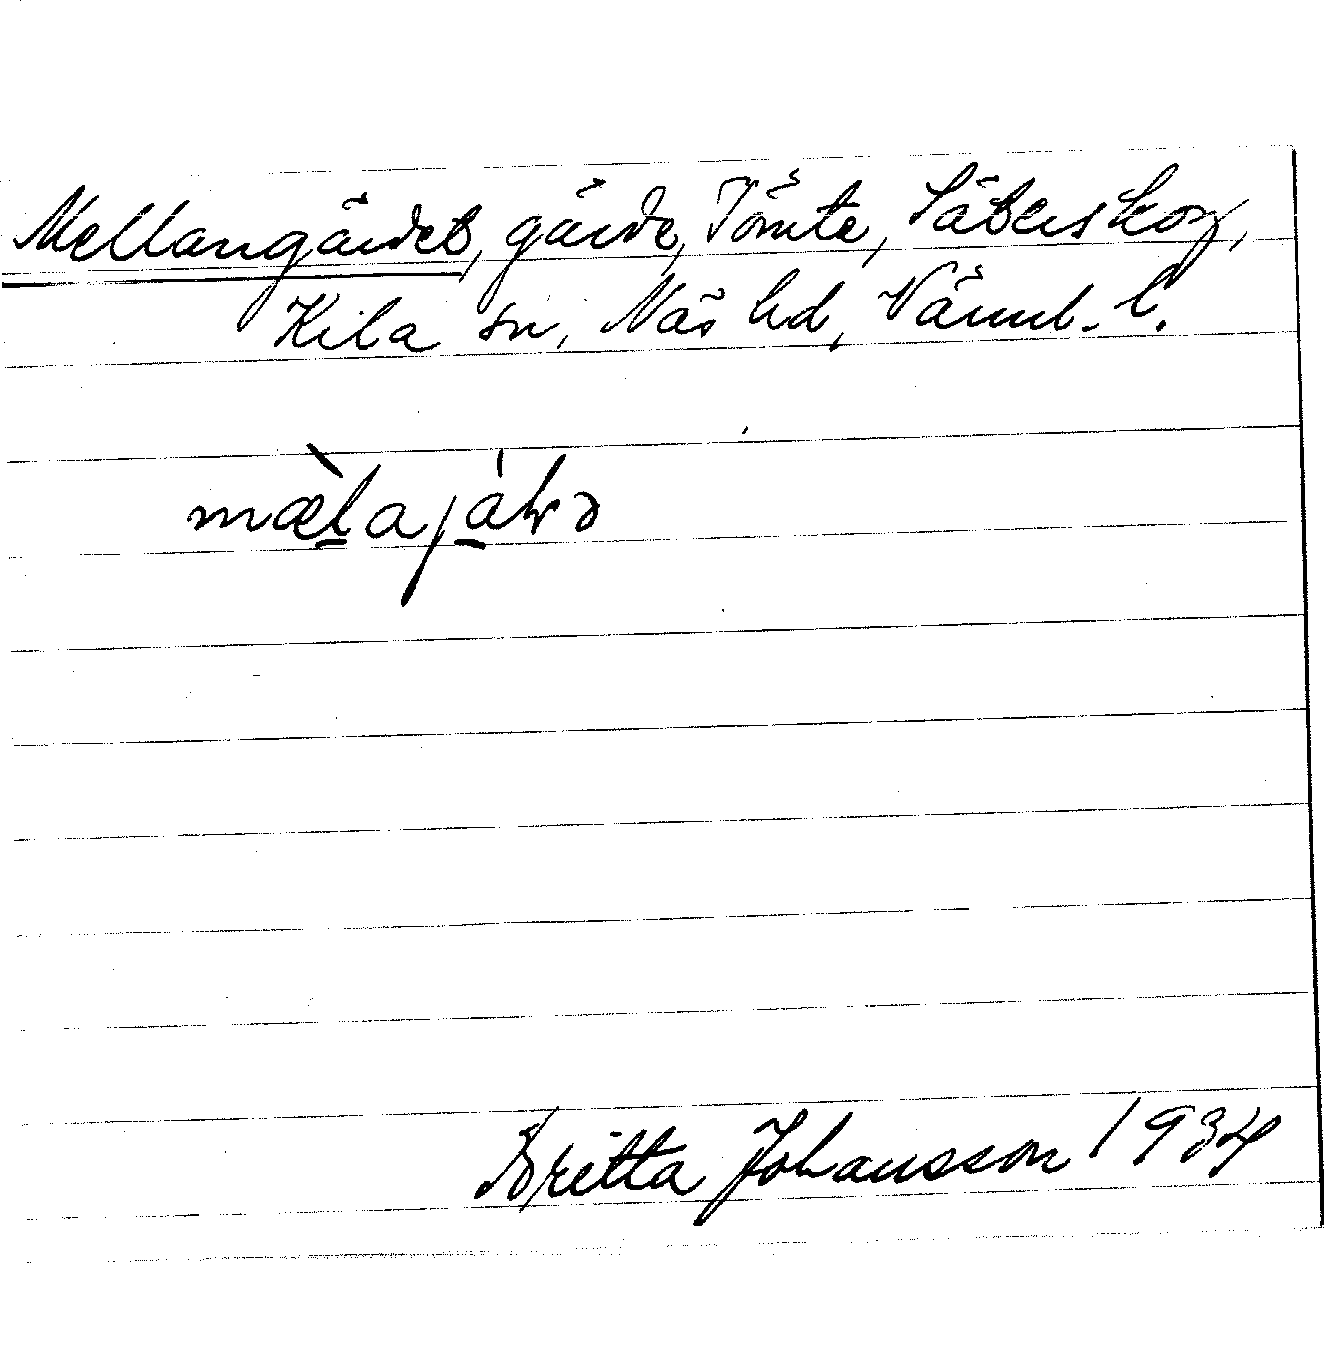 Mellangärdet, gärde, Tömte, Säterskog,
Kila sn, Näs hd, Värml. l.
Britta Johansson 1934